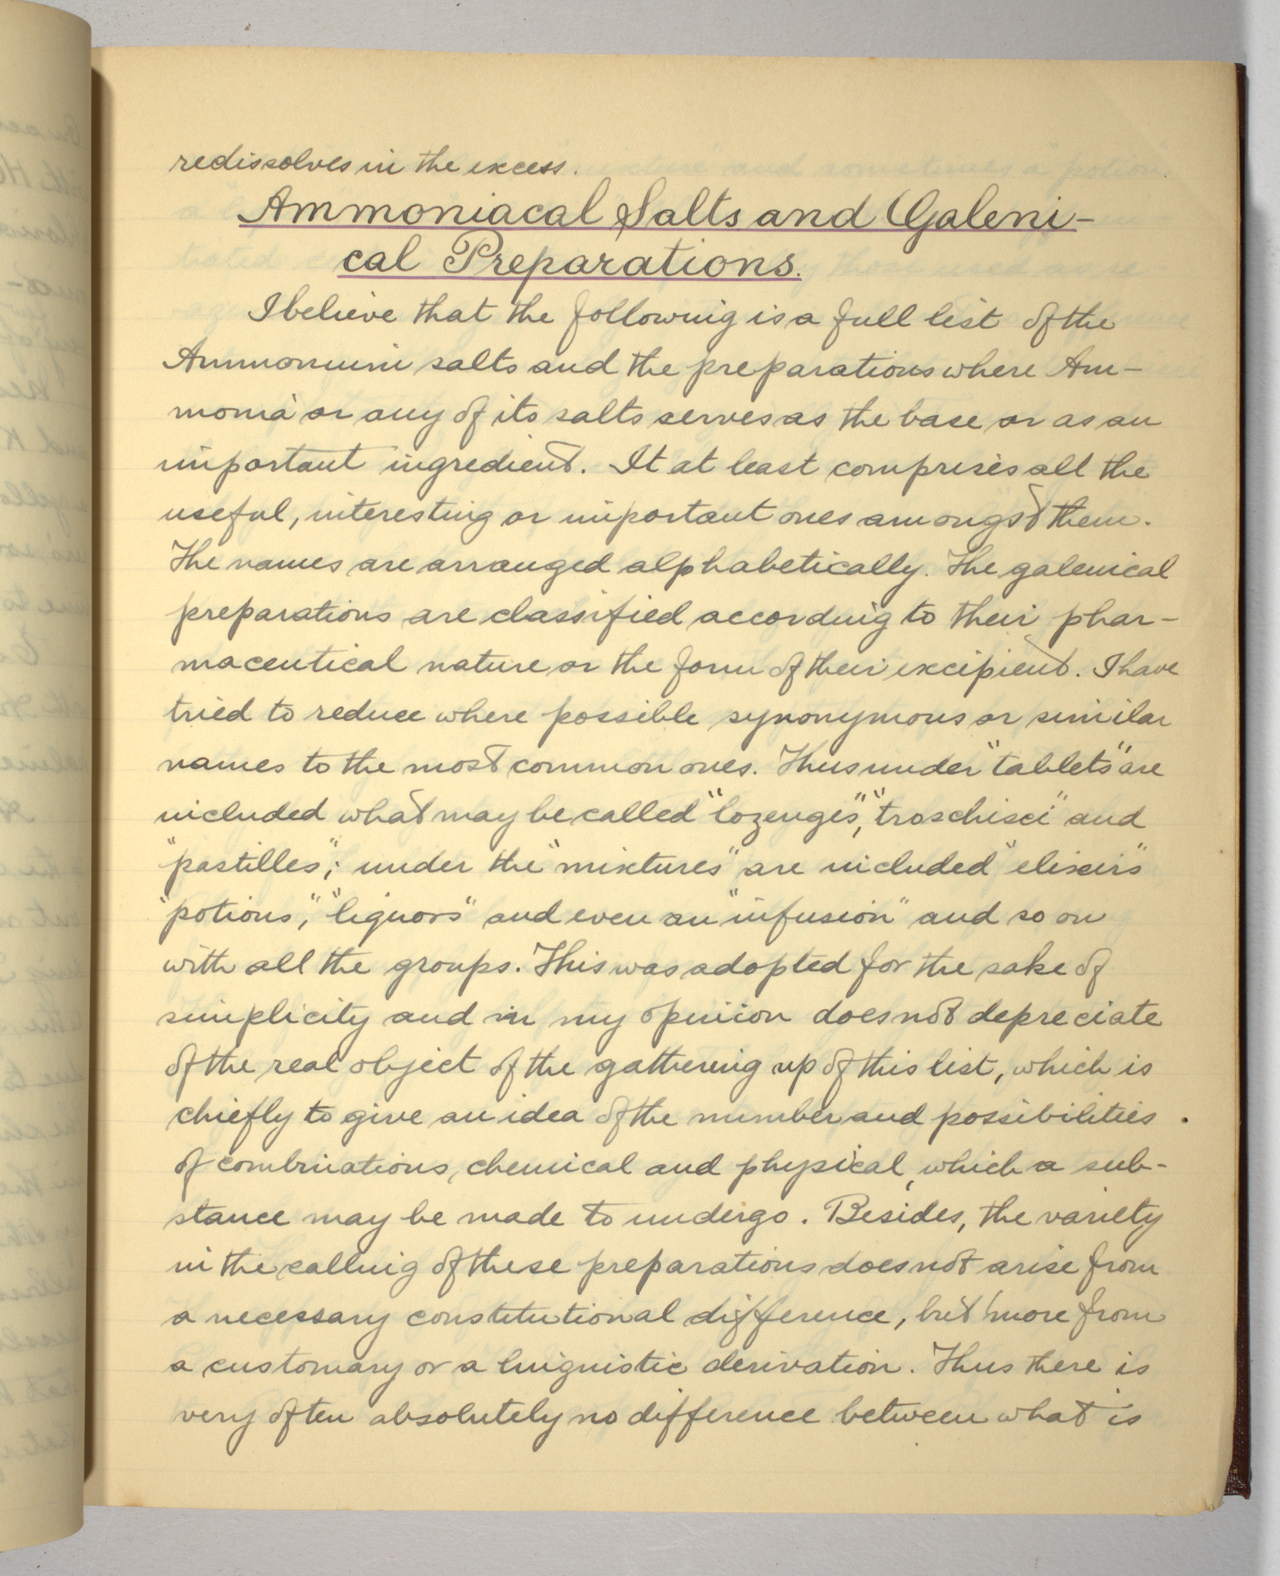 redissolves in the excess.
Ammoniacal Salts and Galeni-
cal Preparations.
I believe that the following is a full list of the
Ammonium salts and the preparations where Am-
monia or any of its salts serves as the base or as an
important ingredient. It at least comprises all the
useful, interesting or important ones amongst them.
The names are arranged alphabetically. The galenical
preparations are classified according to their phar-
maceutical nature or the form of their excipient. I have
tried to reduce where possible synonymous or similar
names to the most common ones. Thus under "tablets" are
included what may be called "lozenges", "troschisci" and
"pastilles"; under the "mixtures" are included "elixirs"
"potions", "liquors" and even an "infusion" and so on
with all the groups. This was adopted for the sake of
simplicity and in my opinion does not depreciate
of the real object of the gathering up of this list, which is
chiefly to give an idea of the number and possibilities
of combinations, chemical and physical, which a sub-
stance may be made to undergo. Besides, the variety
in the calling of these preparations does not arise from
a necessary constitutional difference, but more from
a customary or a linguistic derivation. Thus there is
very often absolutely no difference between what is